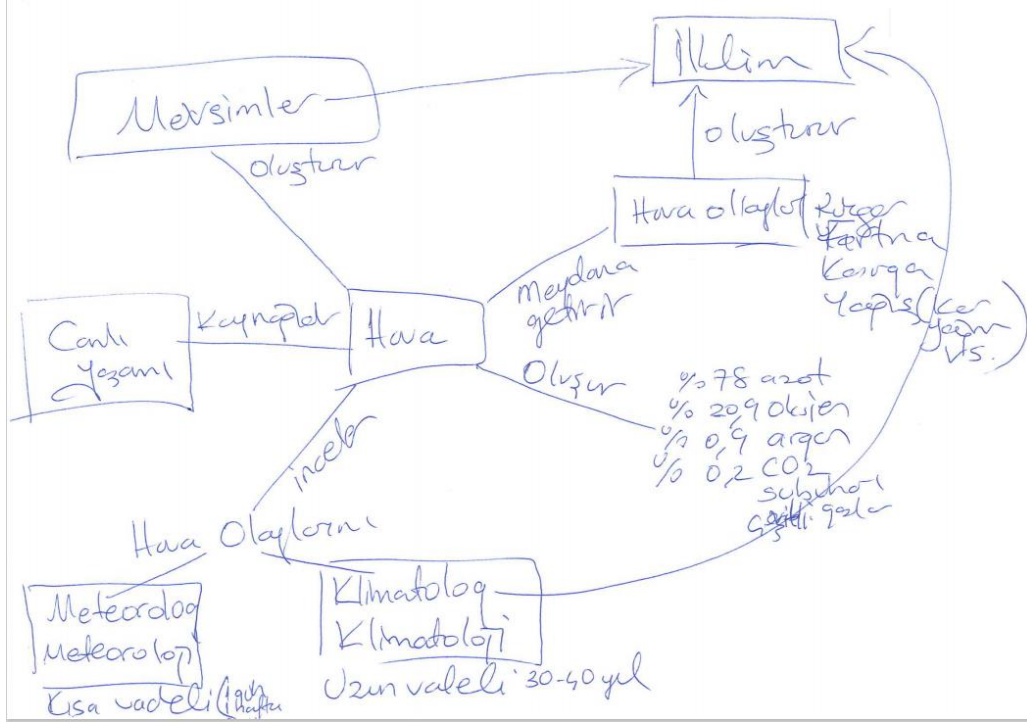 İklim
Mevsimler
oluşturur
Oluşturur
Hava olayları
Rüzgar
Fırtına
Kasırga
Yağış (kar
yağm
vs.)
Meydana
getirir
Canlı
yaşamı
Kaynağıdır
Hava
Oluşur
%78 azot
% 20,9 Oksijen
% 0,9 argon
% 0,2 CO2
subuharı
çeşitli gazlar
inceler
Hava Olaylarını
Meteorolog
Meteoroloji
Kısa vadeli (1 gün
1 hafta
Klimatolog
Klimatoloji
Uzun vadeli 30-40 yıl